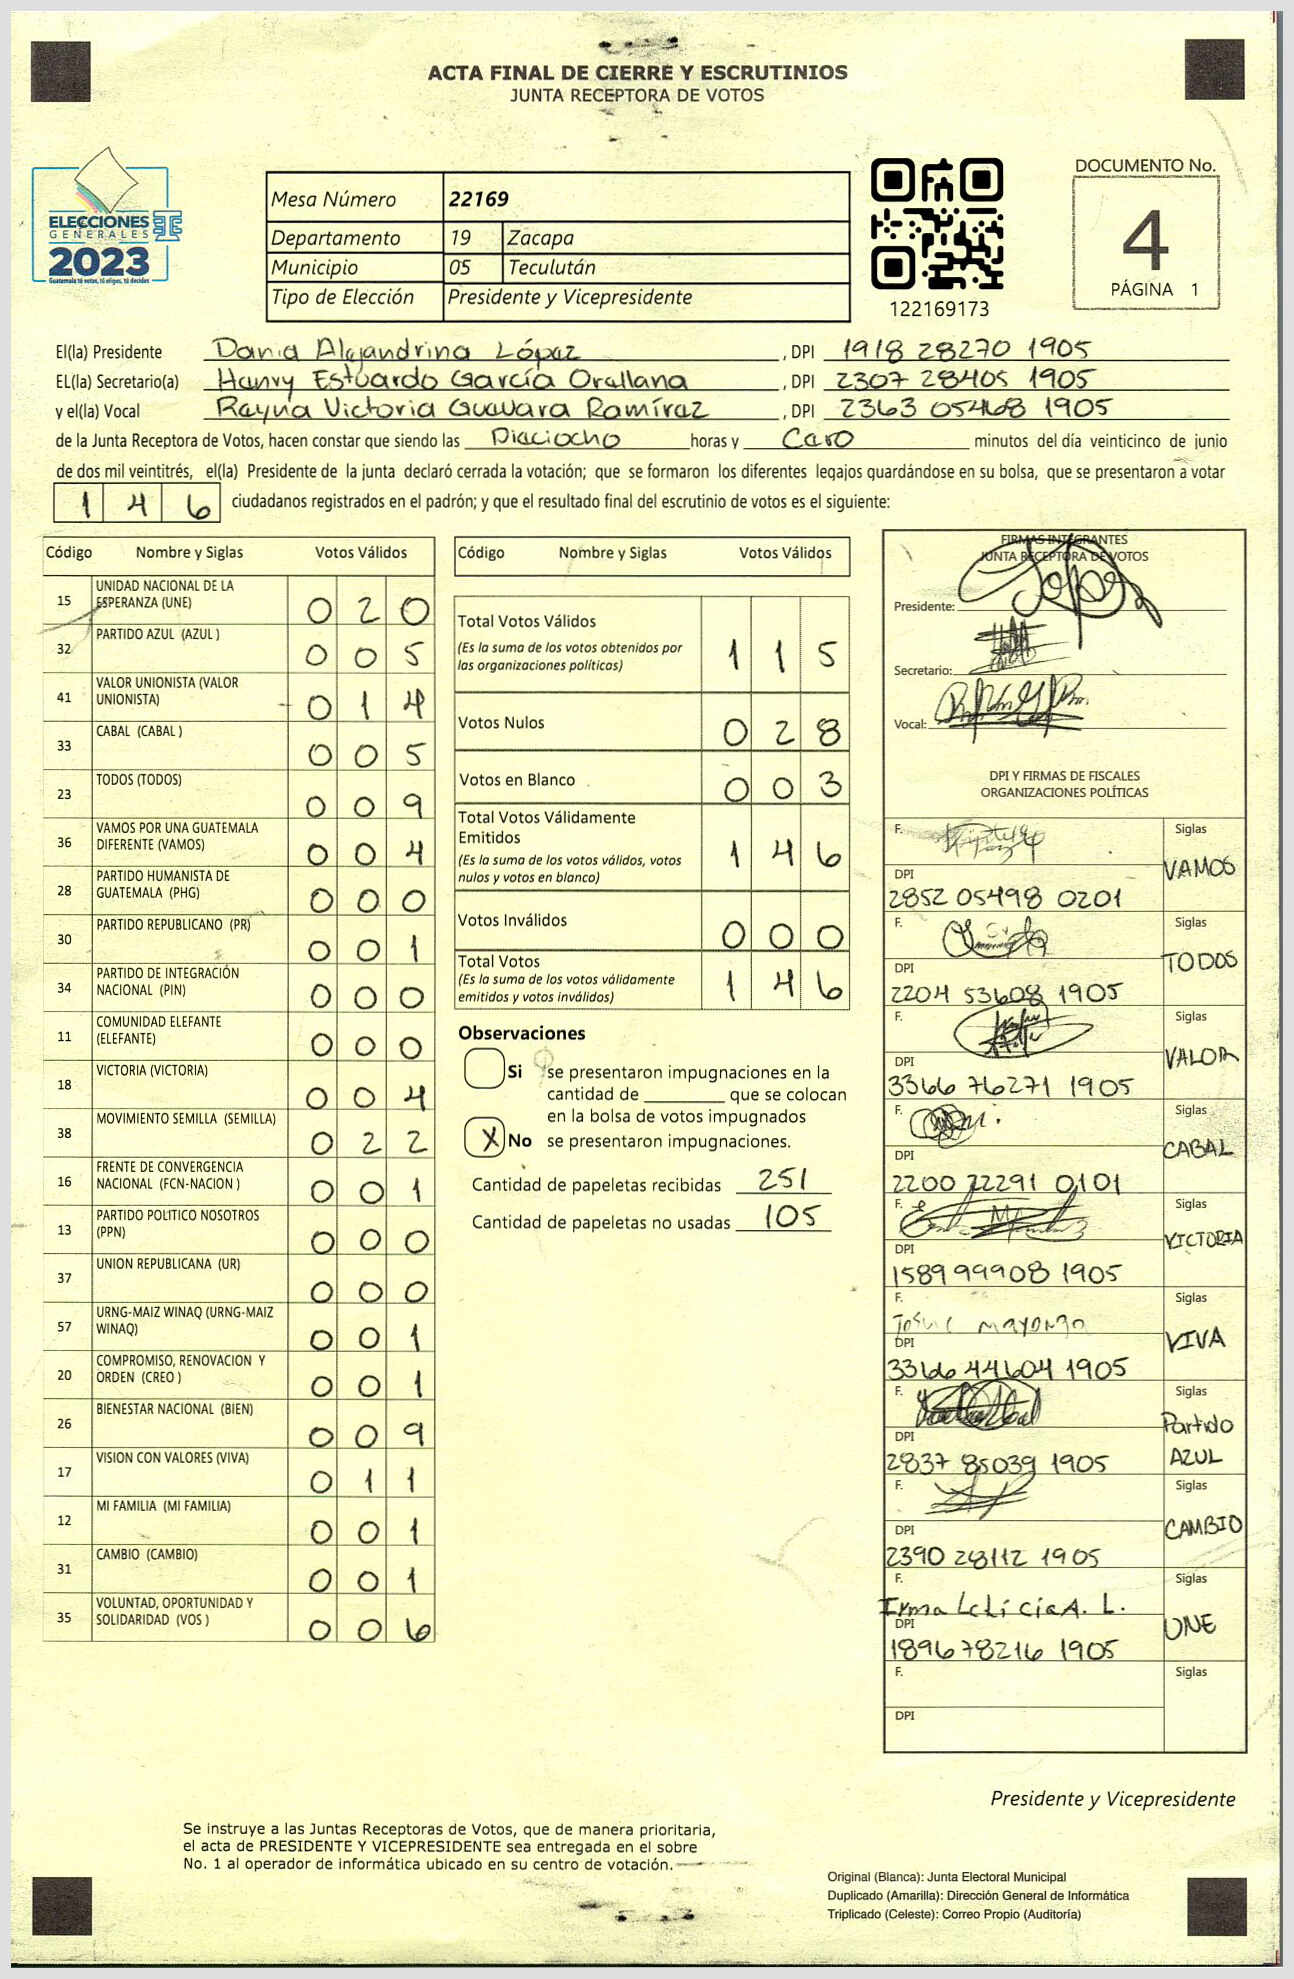 ACTA FINAL DE CIERRE Y ESCRUTINIOS
JUNTA RECEPTORA DE VOTOS
ELECCIONES
GENERALES
2023
Guatemala tú votas, tú eliges, tú decides
Mesa Número 22169
Departamento 19 Zacapa
Municipio 05 Teculután
Tipo de Elección Presidente y Vicepresidente
122169173
DOCUMENTO No.
4
PÁGINA 1
El(la) Presidente Dania Alejandrina López, DPI 1918 28270 1905
EL(la) Secretario(a) Henry Estuardo García Orellana, DPI 2307 28405 1905
y el(la) Vocal Reyna Victoria Guevara Ramírez, DPI 2363 05468 1905
de la Junta Receptora de Votos, hacen constar que siendo las Dieciocho horas y Cero minutos del día veinticinco de junio
de dos mil veintitrés, el(la) Presidente de la junta declaró cerrada la votación; que se formaron los diferentes legajos guardándose en su bolsa, que se presentaron a votar
1 4 6 ciudadanos registrados en el padrón; y que el resultado final del escrutinio de votos es el siguiente:
Código Nombre y Siglas Votos Válidos
15 UNIDAD NACIONAL DE LA ESPERANZA (UNE) 0 2 0
32 PARTIDO AZUL (AZUL ) 0 0 5
41 VALOR UNIONISTA (VALOR UNIONISTA) 0 1 4
33 CABAL (CABAL ) 0 0 5
23 TODOS (TODOS) 0 0 9
36 VAMOS POR UNA GUATEMALA DIFERENTE (VAMOS) 0 0 4
28 PARTIDO HUMANISTA DE GUATEMALA (PHG) 0 0 0
30 PARTIDO REPUBLICANO (PR) 0 0 1
34 PARTIDO DE INTEGRACIÓN NACIONAL (PIN) 0 0 0
11 COMUNIDAD ELEFANTE (ELEFANTE) 0 0 0
18 VICTORIA (VICTORIA) 0 0 4
38 MOVIMIENTO SEMILLA (SEMILLA) 0 2 2
16 FRENTE DE CONVERGENCIA NACIONAL (FCN-NACION ) 0 0 1
13 PARTIDO POLITICO NOSOTROS (PPN) 0 0 0
37 UNION REPUBLICANA (UR) 0 0 0
57 URNG-MAIZ WINAQ (URNG-MAIZ WINAQ) 0 0 1
20 COMPROMISO, RENOVACION Y ORDEN (CREO ) 0 0 1
26 BIENESTAR NACIONAL (BIEN) 0 0 9
17 VISION CON VALORES (VIVA) 0 1 1
12 MI FAMILIA (MI FAMILIA) 0 0 1
31 CAMBIO (CAMBIO) 0 0 1
35 VOLUNTAD, OPORTUNIDAD Y SOLIDARIDAD (VOS ) 0 0 6
Código Nombre y Siglas Votos Válidos
Total Votos Válidos 1 1 5
(Es la suma de los votos obtenidos por
las organizaciones políticas)
Votos Nulos 0 2 8
Votos en Blanco 0 0 3
Total Votos Válidamente
Emitidos 1 4 6
(Es la suma de los votos válidos, votos
nulos y votos en blanco)
Votos Inválidos 0 0 0
Total Votos 1 4 6
(Es la suma de los votos válidamente
emitidos y votos inválidos)
Observaciones
Si se presentaron impugnaciones en la
cantidad de ________ que se colocan
en la bolsa de votos impugnados
X No se presentaron impugnaciones.
Cantidad de papeletas recibidas 251
Cantidad de papeletas no usadas 105
FIRMAS INTEGRANTES
JUNTA RECEPTORA DE VOTOS
Presidente:
Secretario:
Vocal:
DPI Y FIRMAS DE FISCALES
ORGANIZACIONES POLÍTICAS
F. Siglas
VAMOS
DPI
2852 05498 0201
F. Siglas
TODOS
DPI
2204 53608 1905
F. Siglas
VALOR
DPI
3366 76271 1905
F. Siglas
CABAL
DPI
2200 22291 0101
F. Siglas
VICTORIA
DPI
1589 99908 1905
F. Siglas
VIVA
DPI
3366 44604 1905
F. Siglas
Partido
AZUL
DPI
2837 85039 1905
F. Siglas
CAMBIO
DPI
2390 28112 1905
F. Siglas
Irma Leticia A. L.
UNE
DPI
1896 78216 1905
F. Siglas
DPI
Presidente y Vicepresidente
Se instruye a las Juntas Receptoras de Votos, que de manera prioritaria,
el acta de PRESIDENTE Y VICEPRESIDENTE sea entregada en el sobre
No. 1 al operador de informática ubicado en su centro de votación.
Original (Blanca): Junta Electoral Municipal
Duplicado (Amarilla): Dirección General de Informática
Triplicado (Celeste): Correo Propio (Auditoría)